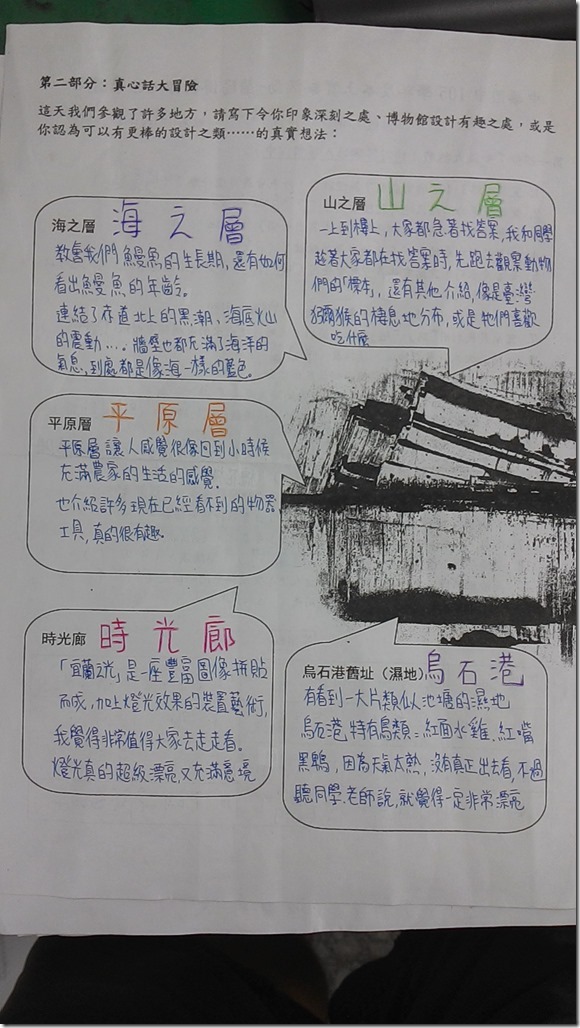 第二部分：真心話大冒險
這天我們參觀了許多地方，請寫下令你印象深刻之處、博物館設計有趣之處，或是
你認為可以有更棒的設計之類……的真實想法：
海之層 海之層
教會我們鰻魚的生長期，還有如何
看出鰻魚的年齡。
連結了赤道北上的黑潮、海底火山
的震動…. 牆壁也都充滿了海洋的
氣息，到處都是像海一樣的藍色。
山之層 山之層
一上到樓上，大家都急著找答案，我和同學
趁著大家都在找答案時，先跑去觀察動物
們的「標本」，還有其他介紹，像是臺灣
獼猴的棲息地分布，或是牠們喜歡
吃什麼
平原層 平原層
平原層讓人感覺很像回到小時候
充滿農家的生活的感覺.
也介紹許多現在已經看不到的物器
工具，真的很有趣.
時光廊 時光廊
「宜蘭之光」是一座豐富圖像拼貼
而成，加上燈光效果的裝置藝術，
我覺得非常值得大家去走走看。
燈光真的超級漂亮，又充滿意境
烏石港舊址（濕地） 烏石港
有看到一大片類似池塘的濕地
烏石港特有鳥類：紅面水雞.紅嘴
黑鵯，因為天氣太熱，沒有真正出去看，不過
聽同學.老師說，就覺得一定非常漂亮